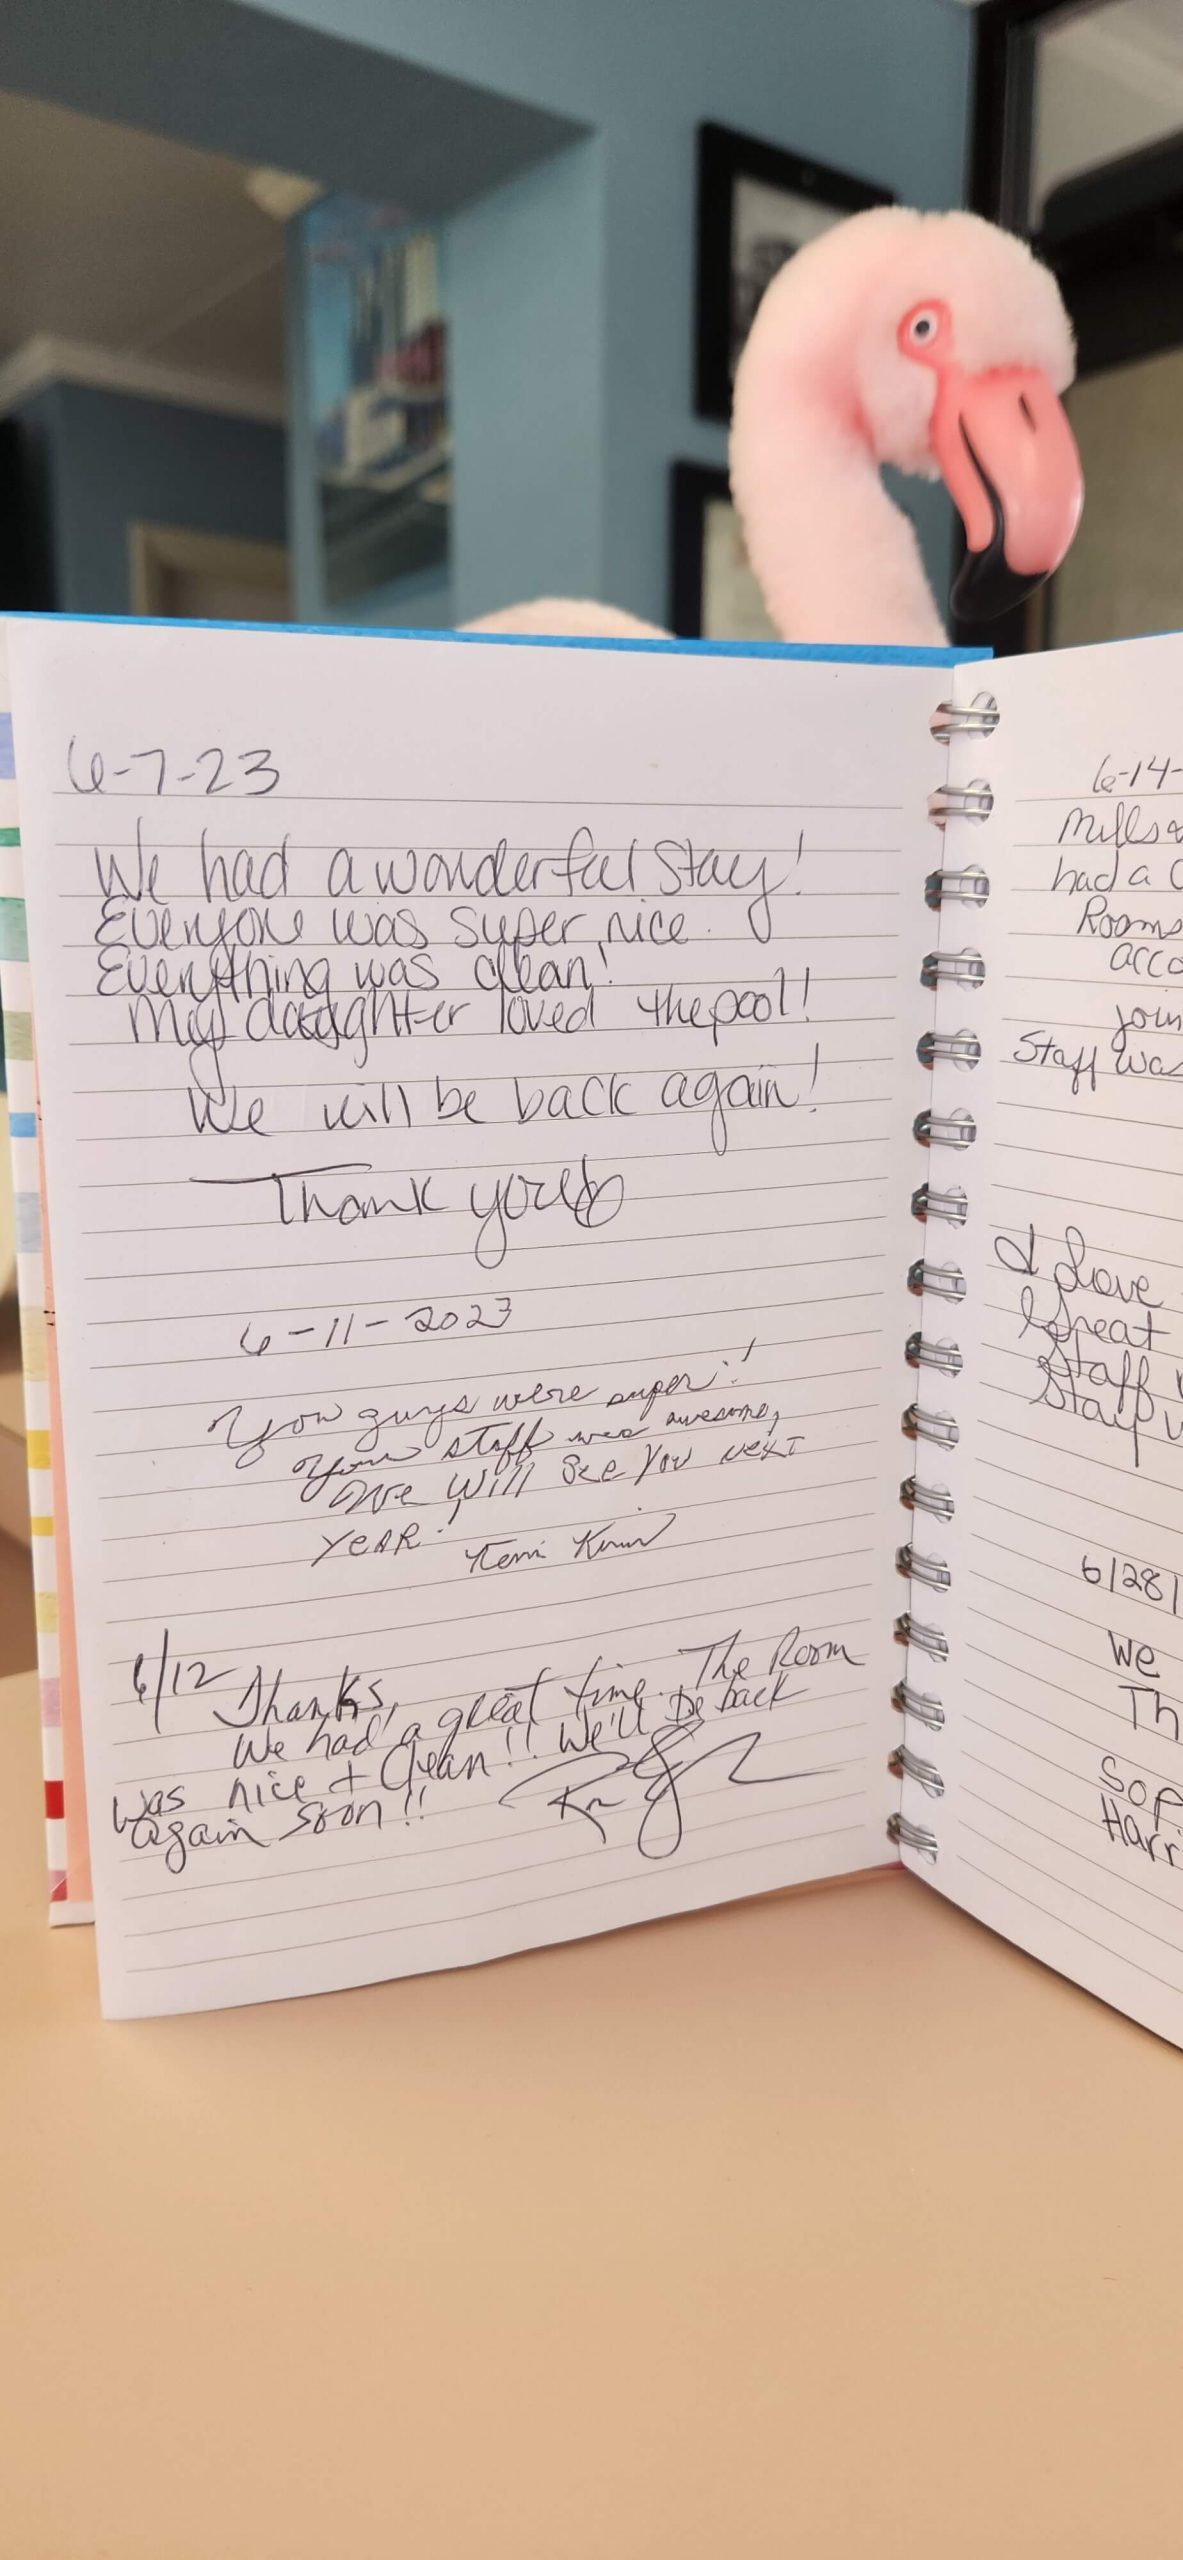 6-7-23
We had a wonderful stay!
Everyone was super nice.
Everything was clean!
My daughter loved the pool!
We will be back again!
Thank you
6-11-2023
You guys were super!
Your staff was awesome,
We Will See You next
YeAR!
6/12 Thanks,
We had a great time. The Room
was nice + Clean!! We'll be back
again soon!!
6-14-
Mills
had a
Rooms
acco
join
Staff was
I Love
Great
Staff
Stay
6/28/
We
Th
Sop
Harri